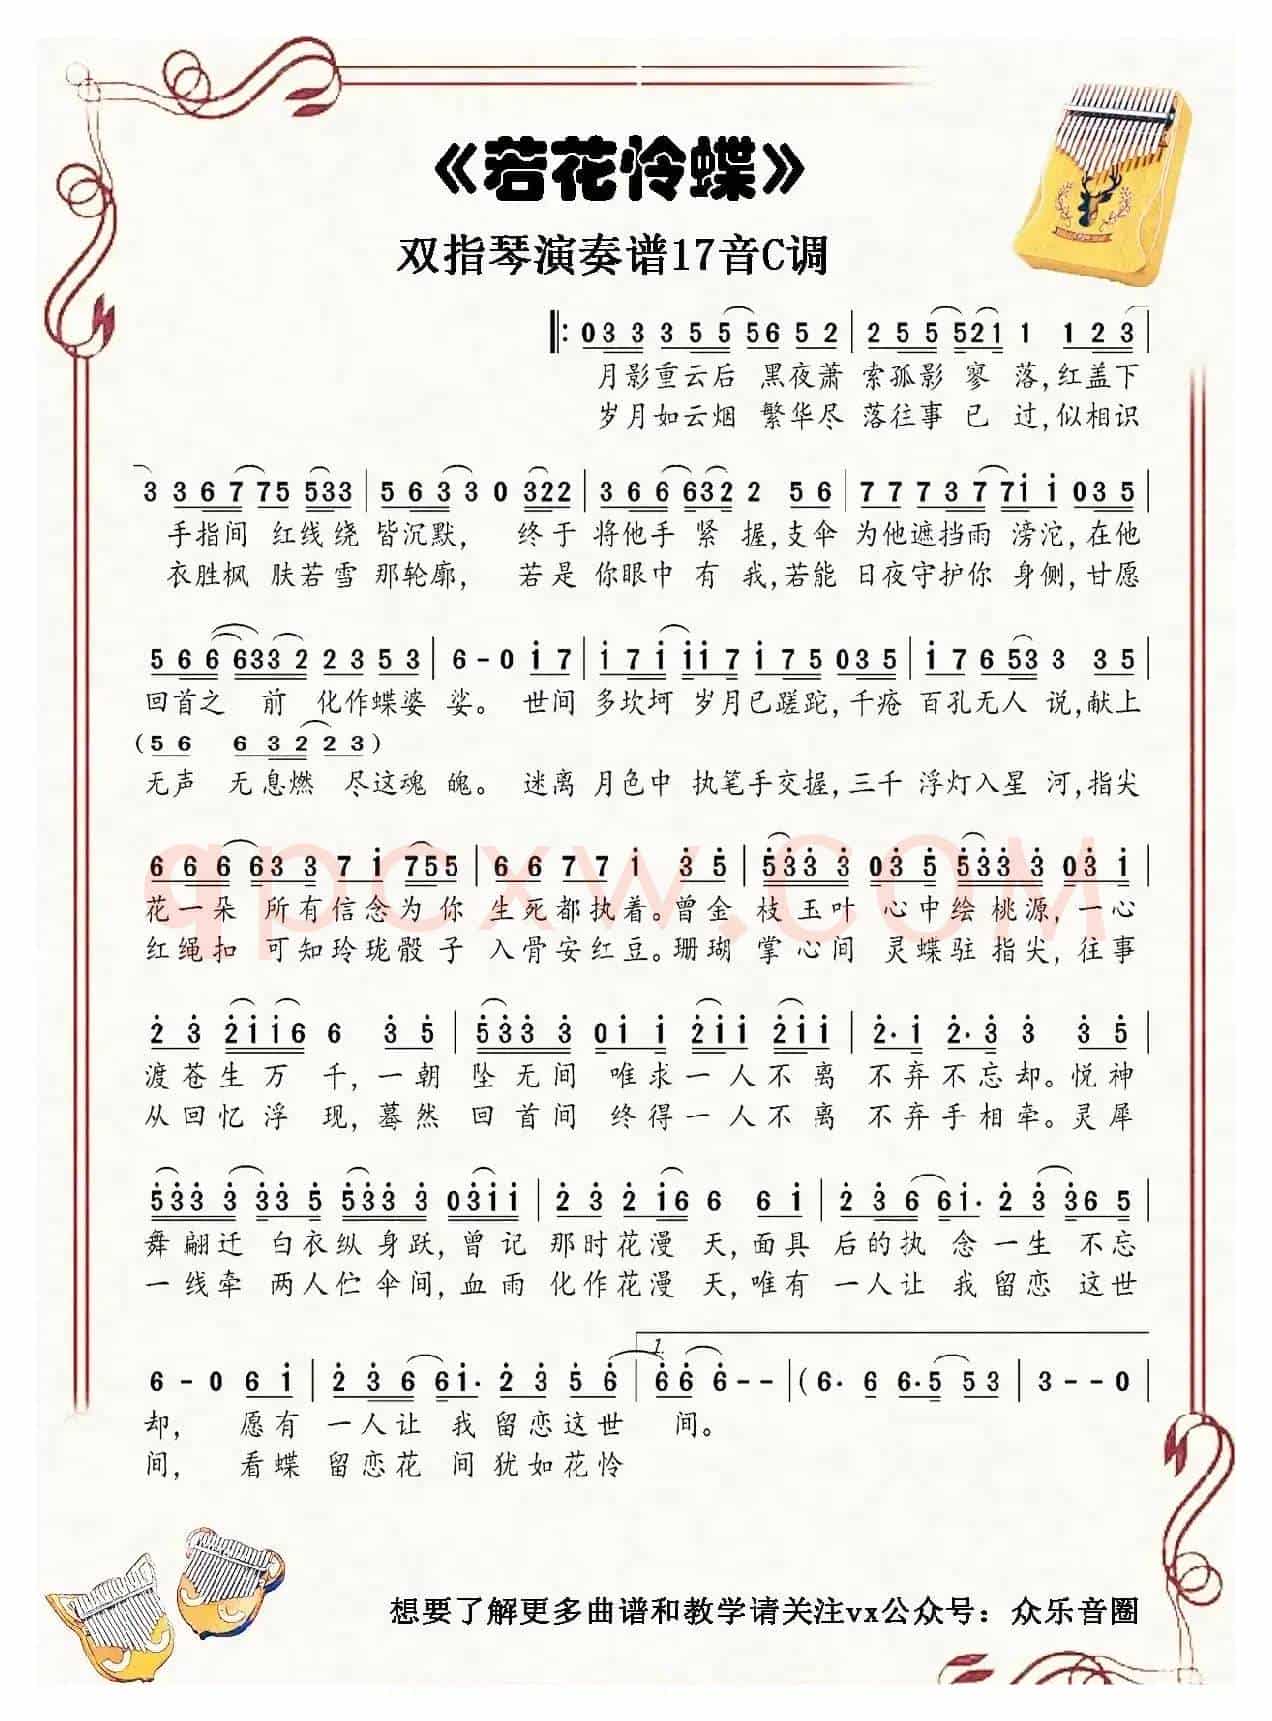 《若花怜蝶》
双指琴演奏谱17音C调
0 3 3 3 5 5 5 6 5 2 | 2 5 5 5 2 1 1 1 2 3 |
月影重云后 黑夜萧 索孤影 寥 落,红盖下
岁月如云烟 繁华尽 落往事 已 过,似相识
3 3 6 7 7 5 5 3 3 | 5 6 3 3 0 3 2 2 | 3 6 6 6 3 2 2 5 6 | 7 7 7 3 7 7 i i 0 3 5 |
手指间 红线绕 皆沉默, 终于 将他手 紧 握,支伞 为他遮挡雨 滂沱,在他
衣胜枫 肤若雪 那轮廓, 若是 你眼中 有 我,若能 日夜守护你 身侧,甘愿
5 6 6 6 3 3 2 2 3 5 3 | 6 - 0 i 7 | i 7 i i i 7 i 7 5 0 3 5 | i 7 6 5 3 3 3 5 |
回首之 前 化作蝶婆 娑。 世间 多坎坷 岁月已蹉跎,千疮 百孔无人 说,献上
(5 6 6 3 2 2 3)
无声 无息燃 尽这魂 魄。 迷离 月色中 执笔手交握,三千 浮灯入星 河,指尖
6 6 6 6 3 3 7 i 7 5 5 | 6 6 7 7 i 3 5 | 5 3 3 3 0 3 5 5 3 3 3 0 3 i |
花一朵 所有信念为你 生死都执着。曾金 枝玉叶 心中绘 桃源,一心
红绳扣 可知玲珑骰子 入骨安红豆。珊瑚 掌心间 灵蝶驻 指尖,往事
2 3 2 i i 6 6 3 5 | 5 3 3 3 0 i i 2 i i 2 i i | 2· i 2· 3 3 3 5 |
渡苍生万 千,一朝 坠无间 唯求一人不离 不弃不忘却。悦神
从回忆浮 现,蓦然 回首间 终得一人不离 不弃手相牵。灵犀
5 3 3 3 3 3 5 5 3 3 3 0 3 i i | 2 3 2 i 6 6 6 i | 2 3 6 6 i· 2 3 3 6 5 |
舞翩迁 白衣纵身跃,曾记 那时花漫 天,面具 后的执 念一生 不忘
一线牵 两人伫伞间,血雨 化作花漫 天,唯有 一人让 我留恋 这世
6 - 0 6 i | 2 3 6 6 i· 2 3 5 6 | 1. 6 6 6 - - | (6· 6 6· 5 5 5 3 | 3 - - 0
却, 愿有 一人让 我 留恋这世 间。
间, 看蝶 留恋花 间 犹如花怜
qpcxw.com
想要了解更多曲谱和教学请关注vx公众号：众乐音圈